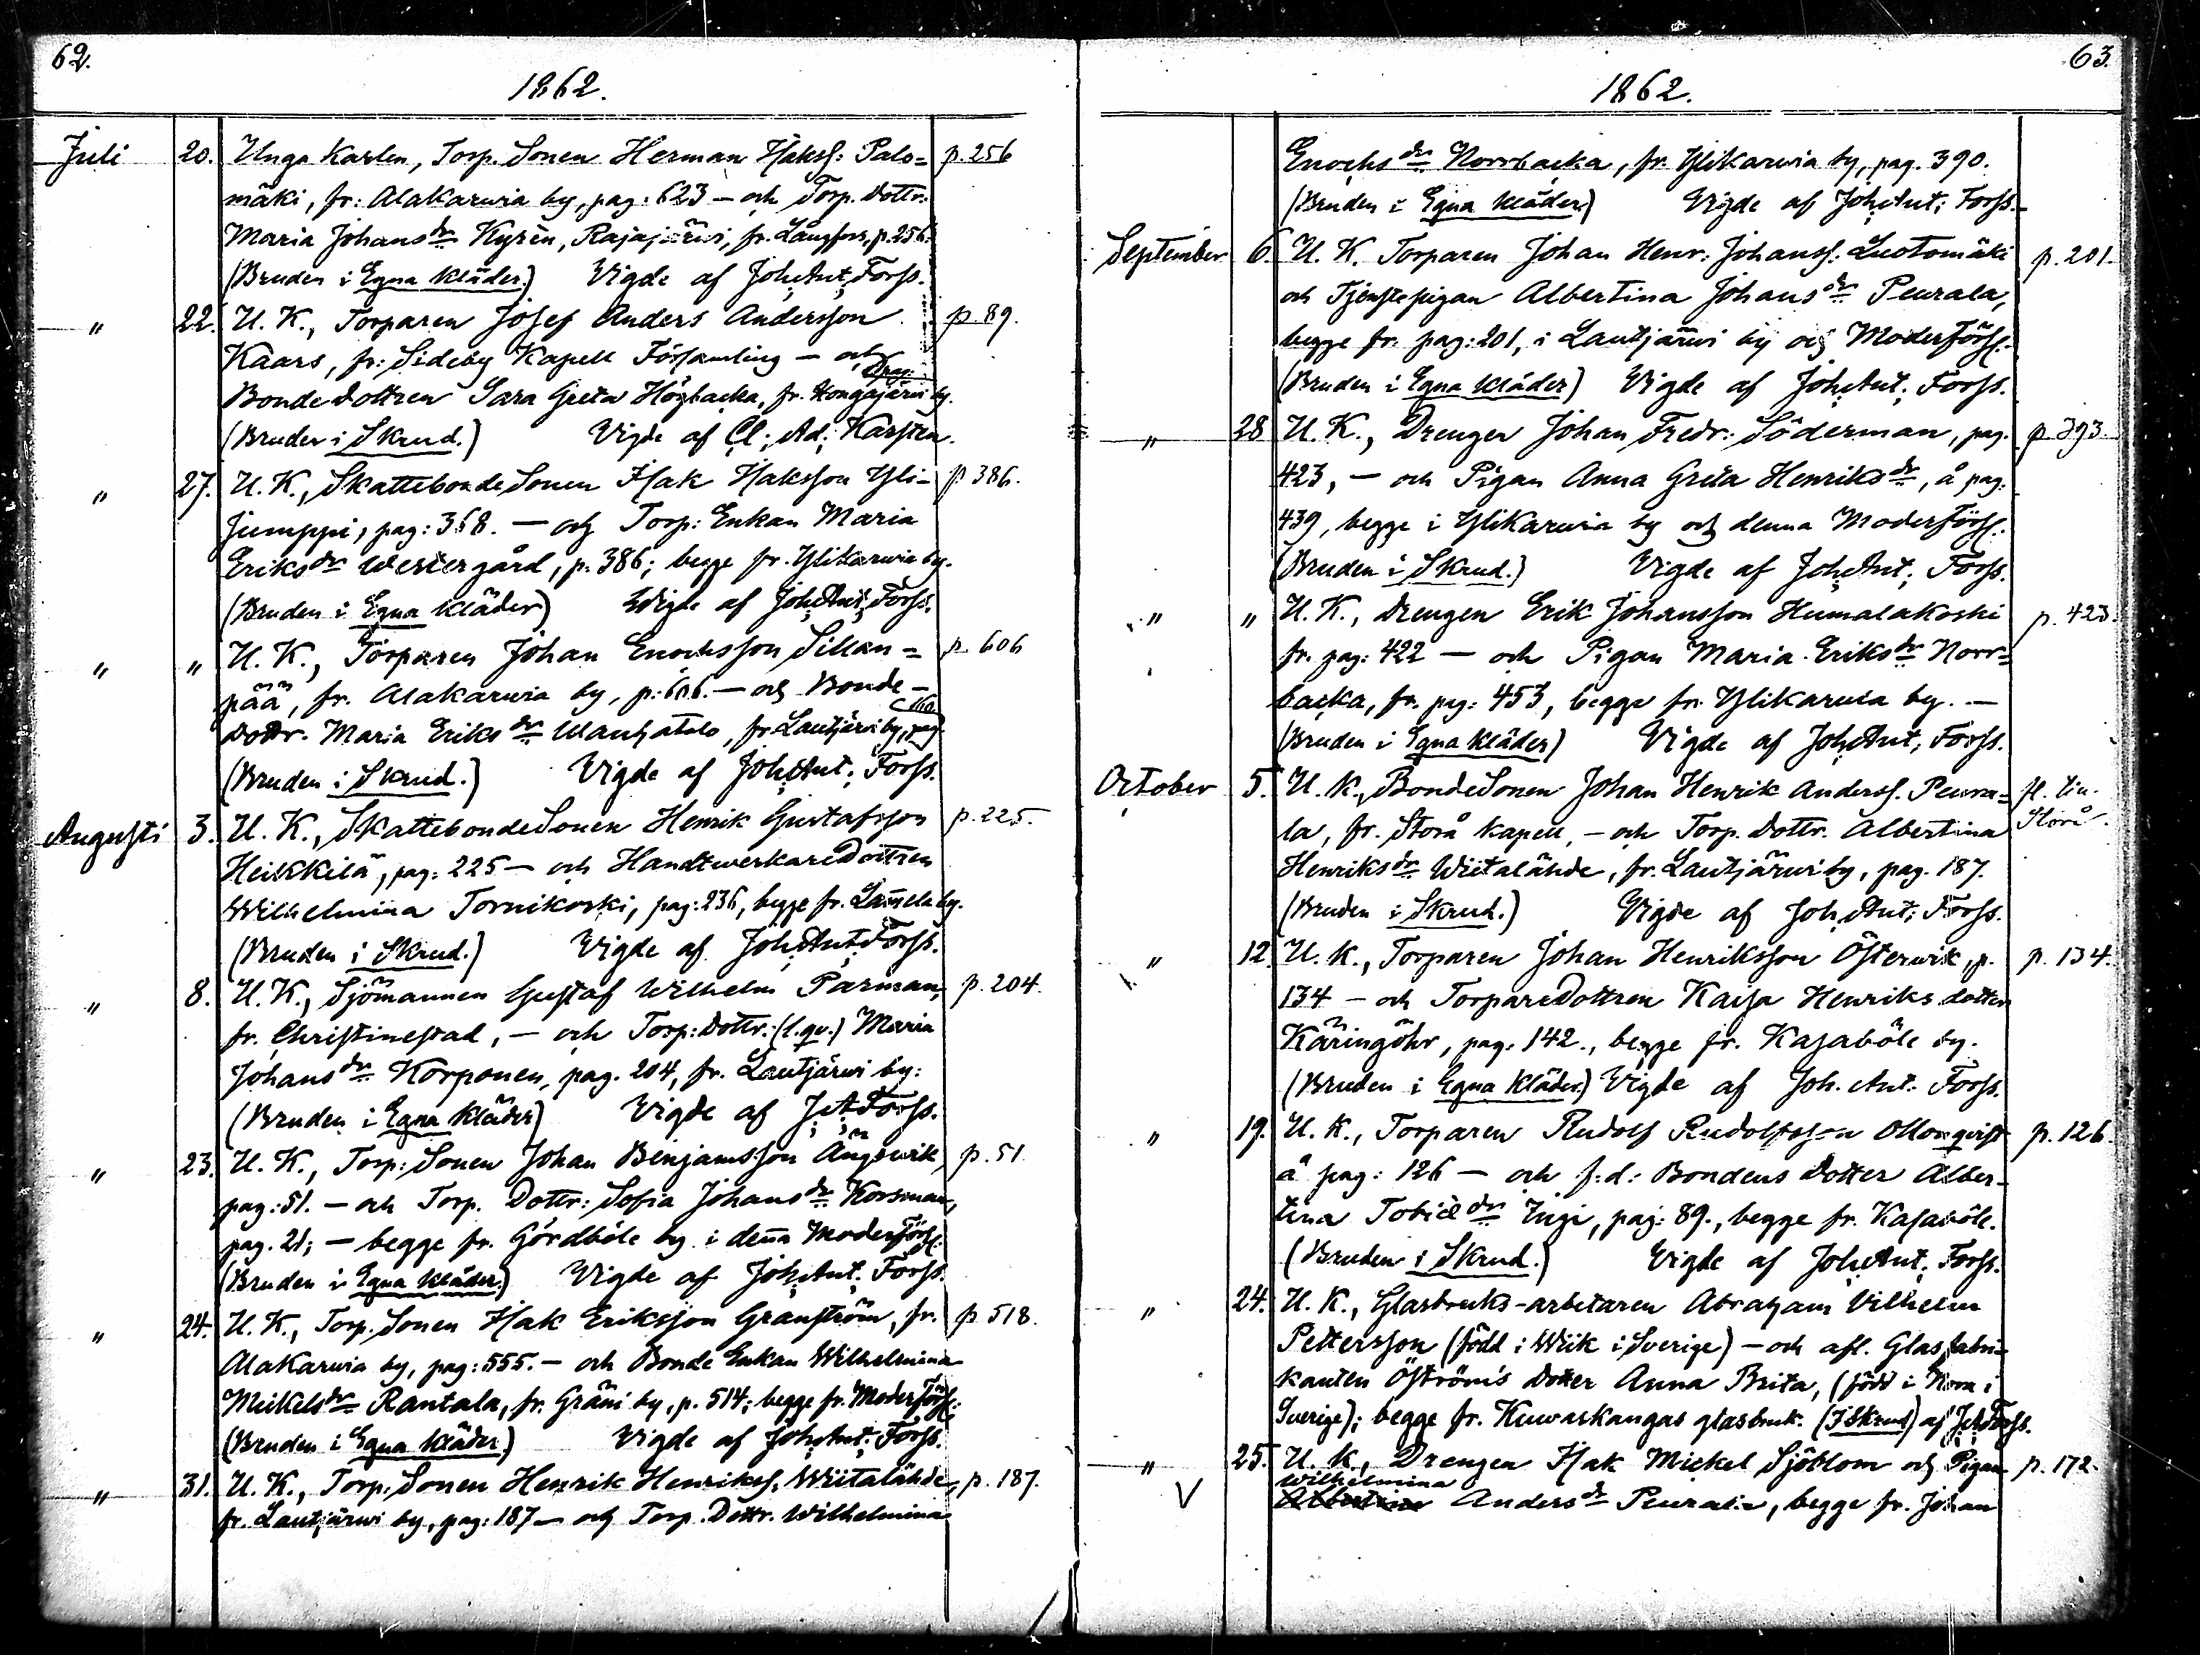 62.
1862.
Juli 20. Unga Karlen, Torp. Sonen Herman Isakss: Palo= p. 256
mäki, fr: Alakarwia by, pag: 623 – och Torp. Dottr:
Maria Johansdr Kyrèn, Rajajärwi, fr. Långfors, p. 256.
(Bruden i Egna Kläder.) Vigde af Joh: Ant: Forss.
" 22. U. K., Torparen Josef Anders Andersson p. 89.
Kaars, fr: Sideby Kapell Församling – och
Bonde Dottren Sara Greta Högbacka, fr. Hongajärwi by.
(Bruden i Skrud.) Vigde af Cl: Ad: Karsten.
" 27. U. K., Skattebonde Sonen Isak Isaksson Yli- p. 386.
Jumppi, pag: 368. – och Torp: Enkan Maria
Eriksdr Westergård, p. 386; begge fr. Ylikarwia by.
(Bruden i Egna Kläder) Vigde af Joh: Ant: Forss.
" " U. K., Torparen Johan Enochsson Sillan= p. 606
pää, fr. Alakarwia by, p: 606. – och Bonde-
Dottr. Maria Eriksdr fr Lautjärwi by, pag.
(Bruden i Skrud.) Vigde af Joh: Ant: Forss.
Augusti 3. U. K., Skattebonde Sonen Henrik Gustafsson p. 225.
Heikkilä, pag: 225 – och Handtwerkare Dottren
Wilhelmina Tornikoski, pag: 236, begge fr. by.
(Bruden i Skrud.) Vigde af Joh: Ant: Forss.
" 8. U. K., Sjömannen Gustaf Wilhelm Parman, p. 204.
fr. Christinestad, – och Torp: Dottr: (l. qv.) Maria
Johansdr Korponen, pag. 204, fr. Lautjärwi by:
(Bruden i Egna Kläder) Vigde af J: A: Forss.
" 23. U. K., Torp: Sonen Johan Benjamsson Ängswik, p. 51
pag: 51. – och Torp. Dottr: Sofia Johansdr Korsman,
pag. 21; – begge fr. Gördböle by i denna Moderförs:
(Bruden i Egna Kläder.) Vigde af Joh: Ant: Forss.
" 24. U. K., Torp. Sonen Isak Eriksson Granström, fr. p. 518.
Alakarwia by, pag: 555. – och Bonde Enkan Wilhelmina
Mickelsdr Rantala, fr. Gräni by, p. 514; begge fr. Moderförs:
(Bruden i Egna Kläder.) Vigde af Joh: Ant: Forss.
" 31. U. K., Torp. Sonen Henrik Henrikss. Wiitalähde, p. 187.
fr. Lautjärwi by, pag: 187 – och Torp. Dottr. Wilhelmina
63.
1862.
Enochsdr Norrbacka, fr. Ylikarwia by, pag. 390.
(Bruden i Egna Kläder.) Vigde af Joh: Ant: Forss.
September 6. U. K. Torparen Johan Henr: Johanss. Luotomäki p. 201.
och Tjenstepigan Albertina Johansdr Peurala,
begge fr. pag: 201, i Lautjärwi by och Moderförs:
(Bruden i Egna Kläder) Vigde af Joh: Ant: Forss.
" 28 U. K., Drengen Johan Fredr: Söderman, pag. p. 393.
423, – och Pigan Anna Greta Henriksdr, å pag.
439, begge i Ylikarwia by och denna Moderförs:
(Bruden i Skrud.) Vigde af Joh: Ant: Forss.
" " U. K., Drengen Erik Johansson Humalakoski p. 423.
fr. pag: 422 – och Pigan Maria Eriksdr Norr=
backa, fr. pag: 453, begge fr. Ylikarwia by. –
(Bruden i Egna Kläder) Vigde af Joh: Ant: Forss.
October 5. U. K., Bonde Sonen Johan Henrik Anderss. Peura= fl. till
la, fr. Storå Kapell, – och Torp. Dottr. Albertina Storå.
Henriksdr Wiitalähde, fr. Lautjärwi by, pag. 187.
(Bruden i Skrud.) Vigde af Joh: Ant: Forss.
" 12. U. K., Torparen Johan Henriksson Österwik, p. p. 134.
134 – och Torpare Dottren Kajsa Henriks dotter
Käringöhr, pag: 142., begge fr. Kasaböle by.
(Bruden i Egna Kläder.) Vigde af Joh. Ant: Forss.
" 19. U. K., Torparen Rudolf Rudolfsson Ollonqvist p. 126.
å pag: 126 – och f: d: Bondens Dotter Alber-
tina Tobiædr Ingi, pag: 89., begge fr. Kasaböle.
(Bruden i Skrud.) Vigde af Joh: Ant: Forss.
" 24. U. K., Glasbruks-arbetaren Abraham Vilhelm
Pettersson (född i Wiik i Sverige) – och afl. Glasfabri-
kanten Öströms Dotter Anna Brita, (född i Nora i
Sverige); begge fr. Kuwaskangas glasbruk. (I Skrud) af J: A: Forss.
" 25. U. K., Drengen Isak Mickel Sjöblom och Pigan p. 172.
Wilhelmina
V Albertina Andersdr Peurala, begge fr. Johan